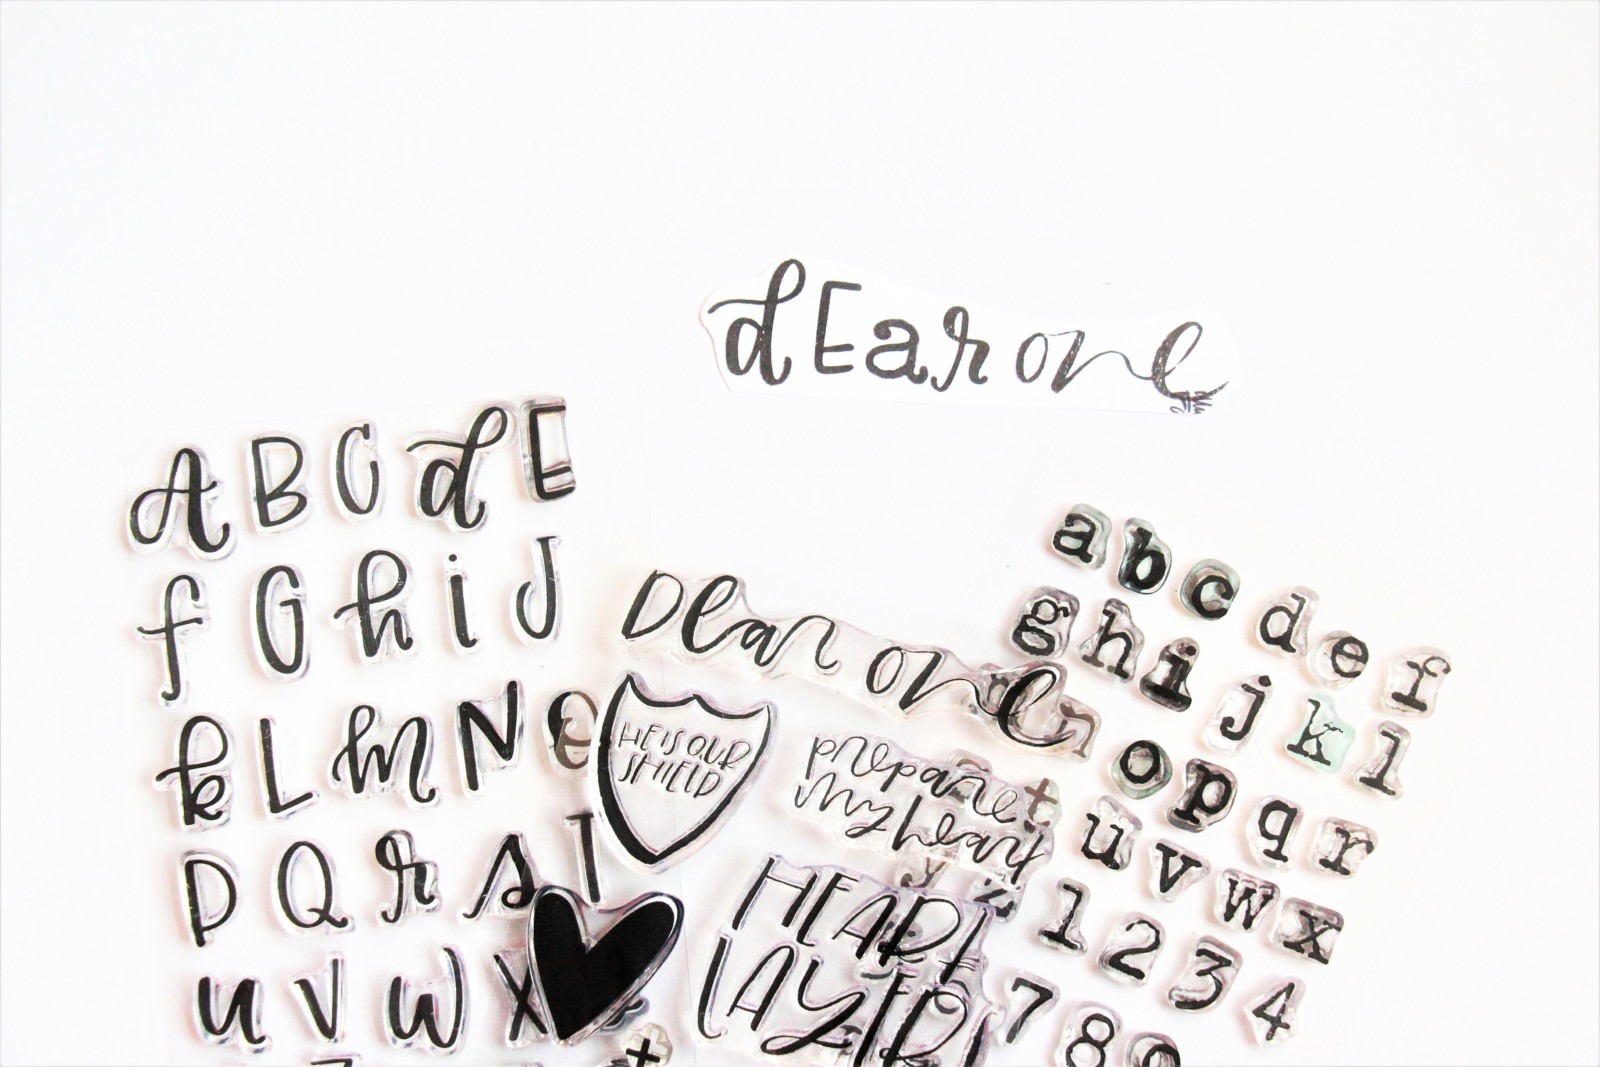 dEar one
A B C d E
f G h i J
k L m N O
P Q r s T
u V W X
Dear one
HE IS OUR
SHIELD
prepare
my heart
HEART
LAYERS
a b c d e f
g h i j k l
o p q r
t u v w x
y z 1 2 3 4
7 8 9